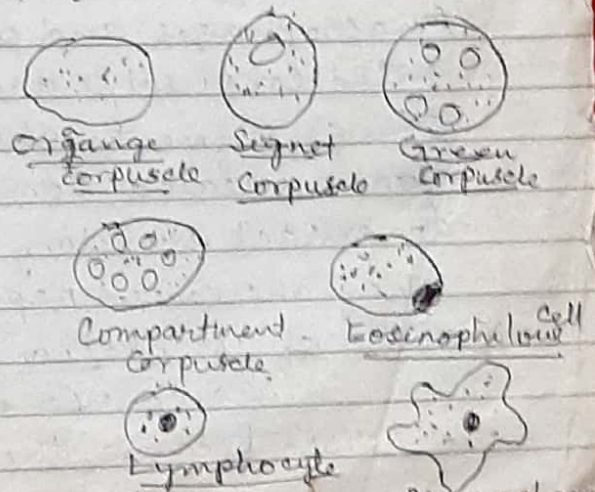 Organge
corpuscle
Signet
corpuscle
Green
corpuscle
Compartment
corpuscle
Eosinophilous cell
Lymphocyte